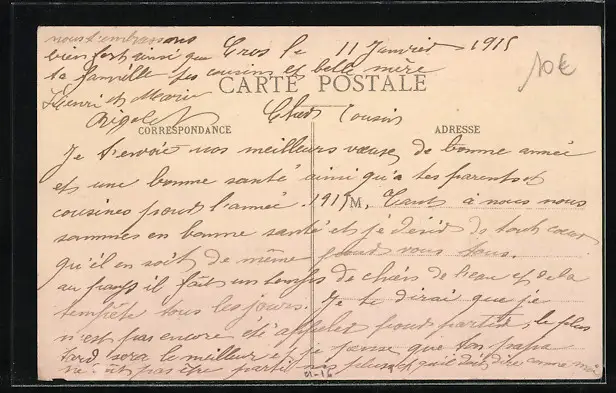 nous t'embrassons
bien fort ainsi que
ta famille tes cousins et belle mère
Henri et Maria
Rigolet
Cros le 11 Janvier 1915
10€
CARTE POSTALE
Cher Cousin
CORRESPONDANCE
ADRESSE
Je t'envoie nos meilleurs vœux de bonne année
et une bonne santé ainsi qu'a tes parents et
cousines pour l'année 1915 M. Tant à nous nous
sommes en bonne santé et je désire de tout cœur
qu'il en soit de même pour vous tous.
au il fait un temps de chien de l'eau et de la
tempête tous les jours. Je te dirai que je
n'est pas encore été appeler pour partir, le plus
tard sera le meilleur et je pense que ton papa
ne est pas être parti non plus qu'il doit être comme moi
01-16